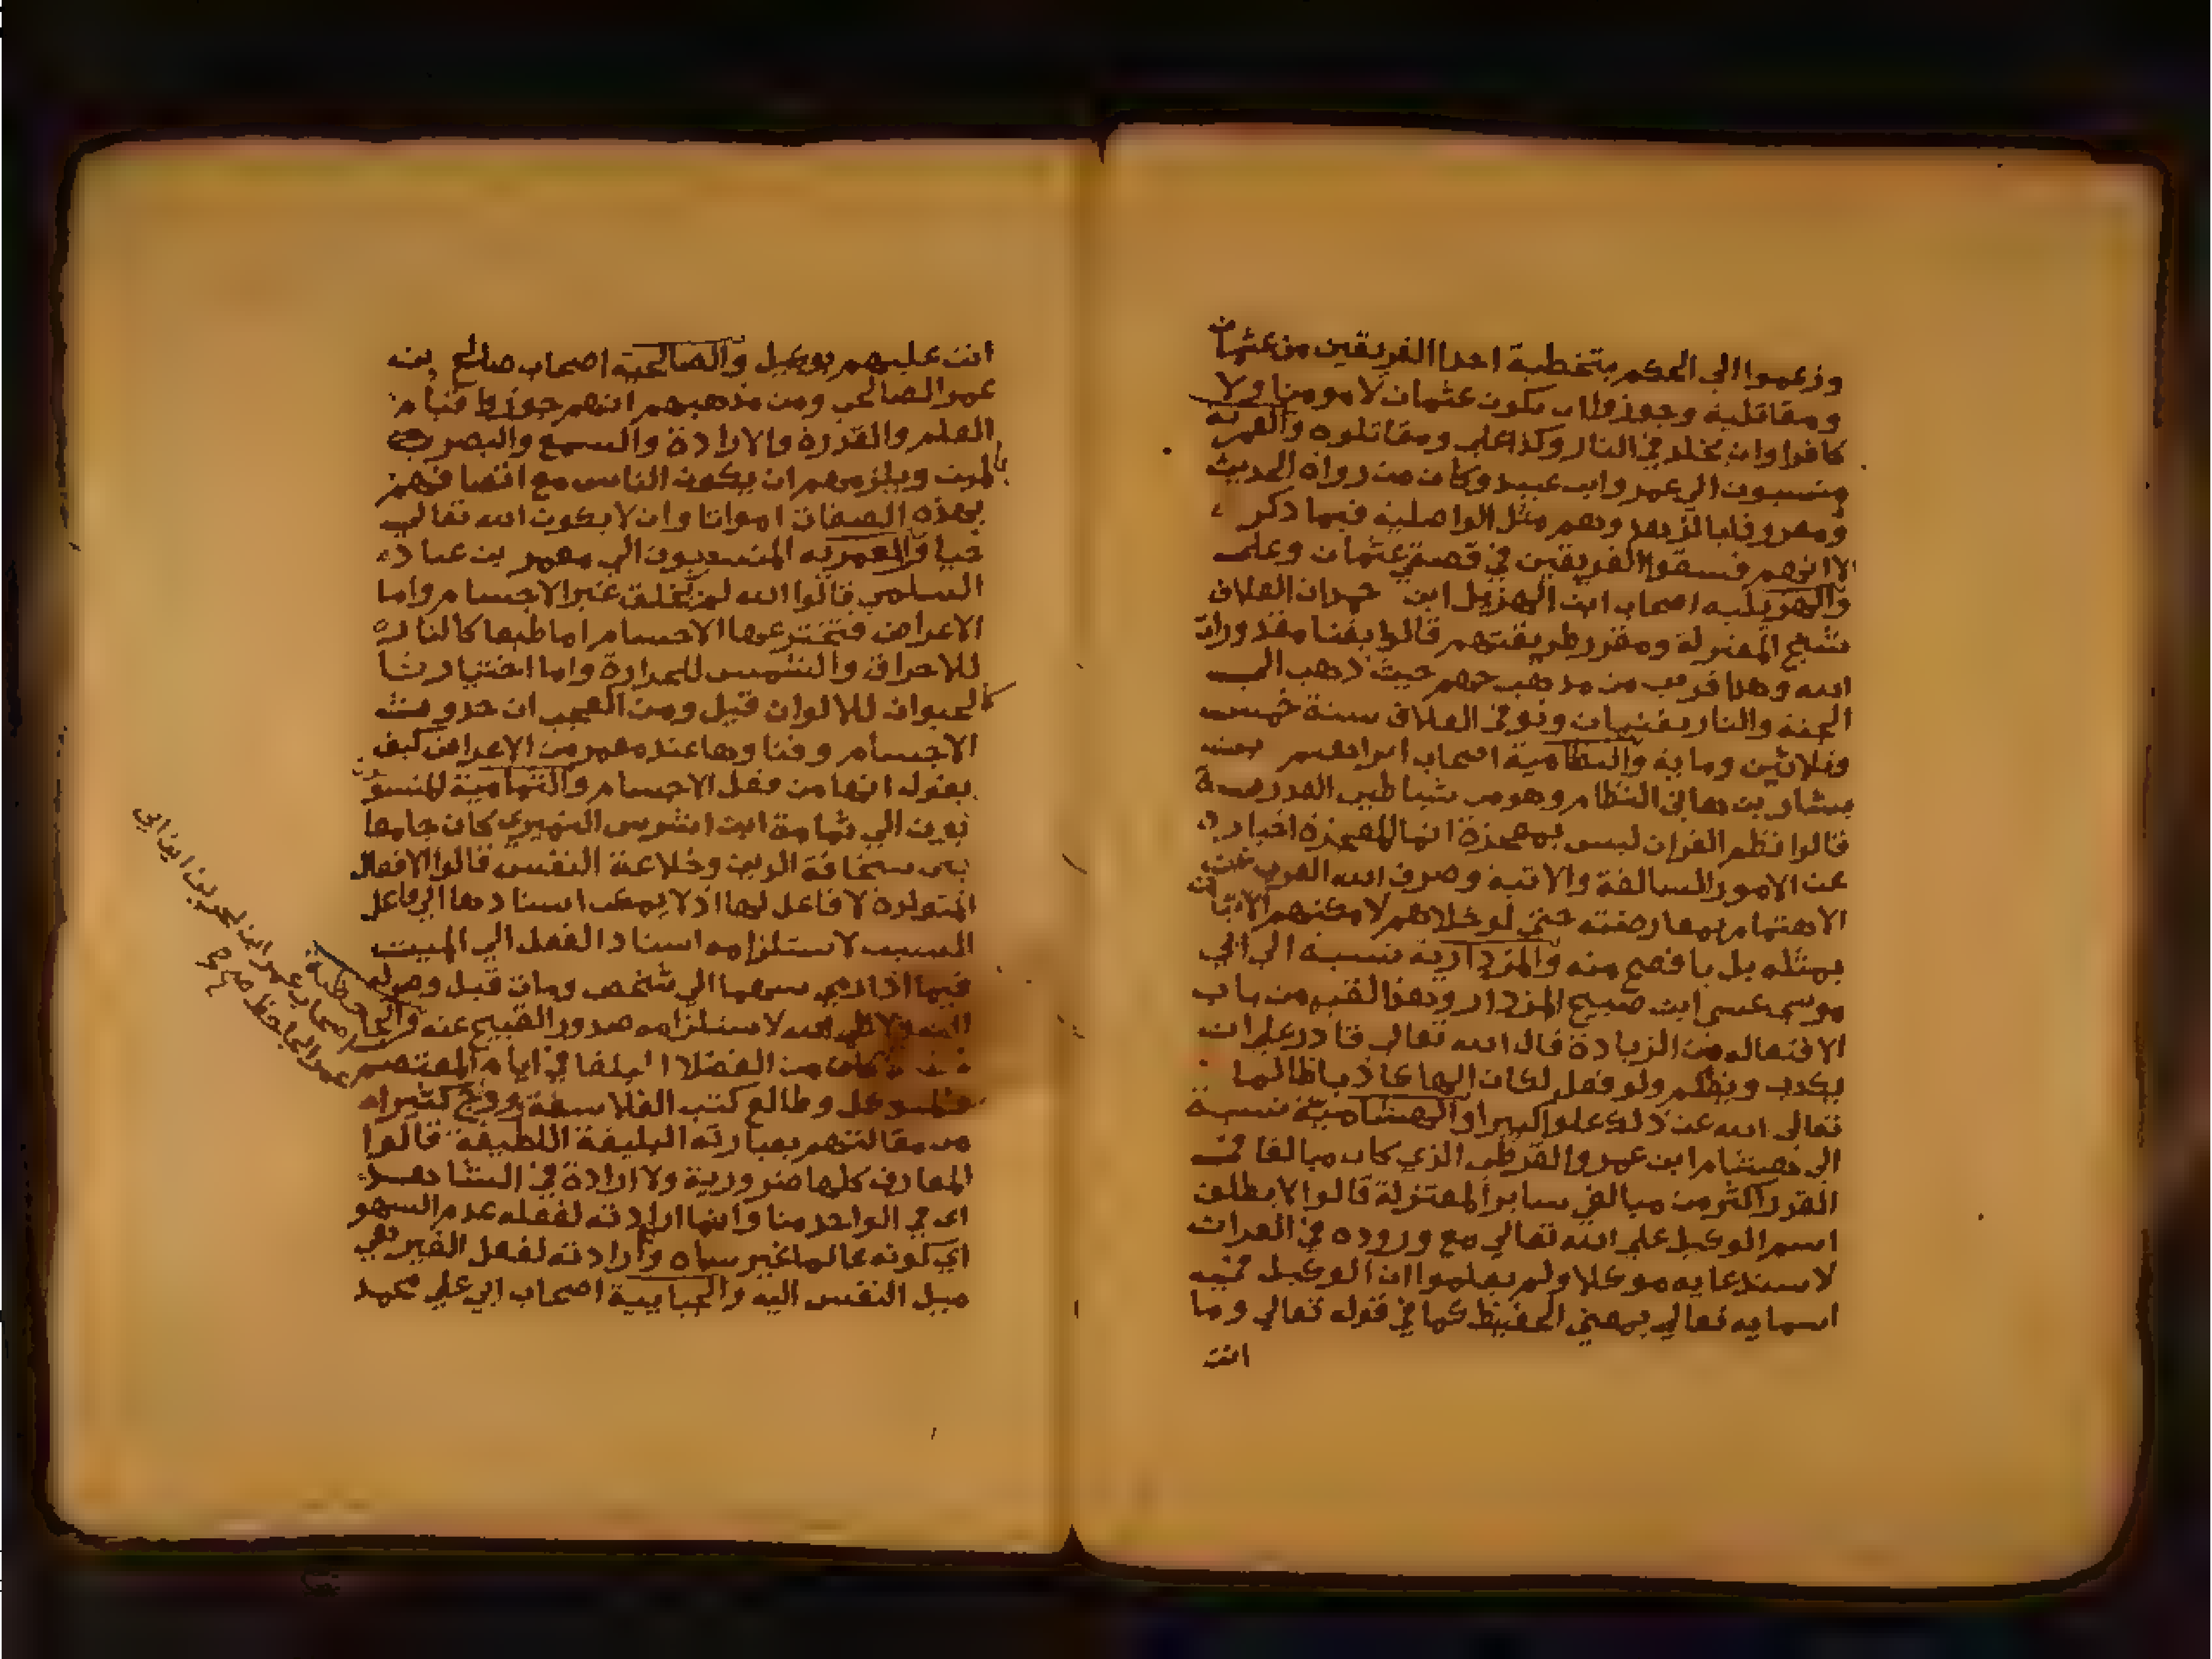 وزعموا الى الحكم بتخطية احدا الفريقين من عثمان
ومقاتليه وجوزوا ان يكون عثمان لا مومنا ولا
كافرا وان يخلد في النار وكذا علي ومقاتلوه والعمريه
ينسبون الي عمر وابن عبيد وكان من رواة الحديث
ومعروفا بالزهد وهم مثل الواصليه فيما ذكر
الا انهم فسقوا الفريقين في قصتي عثمان وعلي
والهذيليه اصحاب ابن الهذيل ابن حمدان العلاف
شيخ المعتزلة ومقرر طريقتهم قالوا بفنا مقدورات
الله وهذا قريب من مذهب جهم حيث ذهب الي
الجنه والنار يفنيان وتوفي العلاف سنة خمس
وثلاثين ومايه والنظامية اصحاب ابراهيم بن
سيار بن هاني النظام وهو من شياطين القدرية
قالوا نظم القران ليس بمعجزة انما المعجزة اخباره
عن الامور السالفة والاتيه وصرف الله العرب عن
الاهتمام بمعارضته حتي لو خلاهم لامكنهم الاتيان
بمثله بل بافصح منه والمزدارية نسبه الي ابي
موسي عيسي ابن صبيح المزدار وهذا لقبه من باب
الافتعال من الزيادة قال الله تعالي قادر علي ان
يكدب ويظلم ولو فعل لكان الها كاذبا ظالما
تعالي الله عن ذلك علوا كبيرا والهشامية نسبة
الي هشام ابن عمرو القرطي الذي كان مبالغا في
القدر اكثر من مبالغي ساير المعتزلة قالوا لا يطلق
اسم الوكيل علي الله تعالي مع وروده في القران
لاستدعايه موكلا ولم يعلموا ان الوكيل في
اسمايه تعالي بمعني الحفيظ كما في قوله تعالي وما
انت
انت عليهم بوكيل والصالحية اصحاب صالح بن
عمر الصالحي ومن مذهبهم انهم جوزوا قيام
العلم والقدرة والارادة والسمع والبصر
بالميت ويلزمهم ان يكون الناس مع اتصافهم
بهذه الصفات امواتا وان لا يكون الله تعالي
حيا والعمريه المنسوبون الي معمر بن عباد
السلمي قالوا الله لم يخلق غير الاجسام واما
الاعراض فتخترعها الاجسام اما طبعا كالنار
للاحراق والشمس للحرارة واما اختيارا
كالحيوان للالوان قيل ومن العجب ان حدوث
الاجسام وفناوها عند معمر من الاعراض كيف
يقول انها من فعل الاجسام والثمامية المنسو
بون الي ثمامة ابن اشرس النميري كان جامعا
بين سخافة الدين وخلاعة النفس قالوا الافعال
المتولدة لا فاعل لها اذ لا يمكن اسنادها الي فاعل
السبب لاستلزامه اسناد الفعل الي الميت
فيما اذا رمي سهما الي شخص ومات قبل وصوله
اليه ولا الي الله لاستلزامه صدور القبيح عنه والجاحظية
اصحاب عمر ابن بحر
عمرو الجاحظ صح
كان من الفضلا البلغا في ايام المعتصم
والمتوكل وطالع كتب الفلاسفة وروج كثيرا
من مقالتهم بعبارته البليغة اللطيفة قالوا
المعارف كلها ضرورية ولا ارادة في الشاهد
اي في الواحد منا وانما ارادته لفعله عدم السهو
اي كونه عالما غير ساه وارادته لفعل الغير هي
ميل النفس اليه والجبايية اصحاب ابي علي محمد